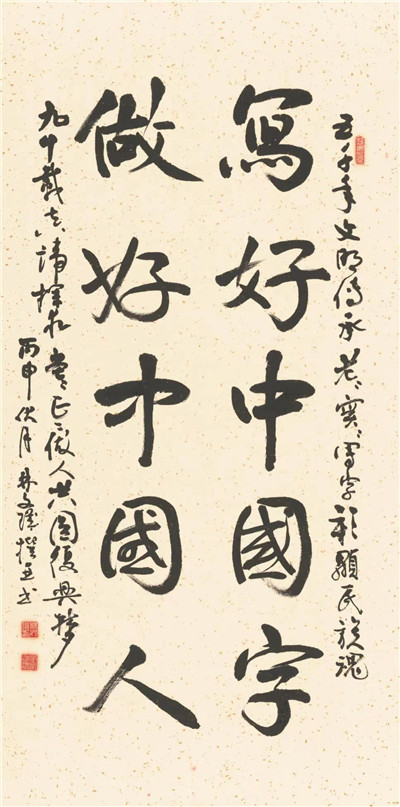 五千年文明傳承老々實々寫字彰顯民族魂
寫好中國字
做好中國人
九十載真諦探求堂々正々做人共圓復興夢
丙申伏月 撰並書